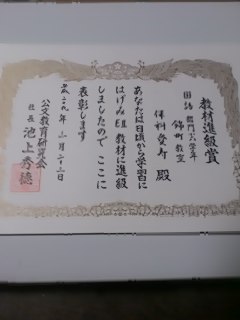 教材進級賞
国語 部門 六学年
錦町 教室
殿
あなたは日頃から学習に
はげみEⅡ教材に進級
しましたので ここに
表彰します
平成二九年 二月二十三日
公文教育研究会
社長 池上秀徳